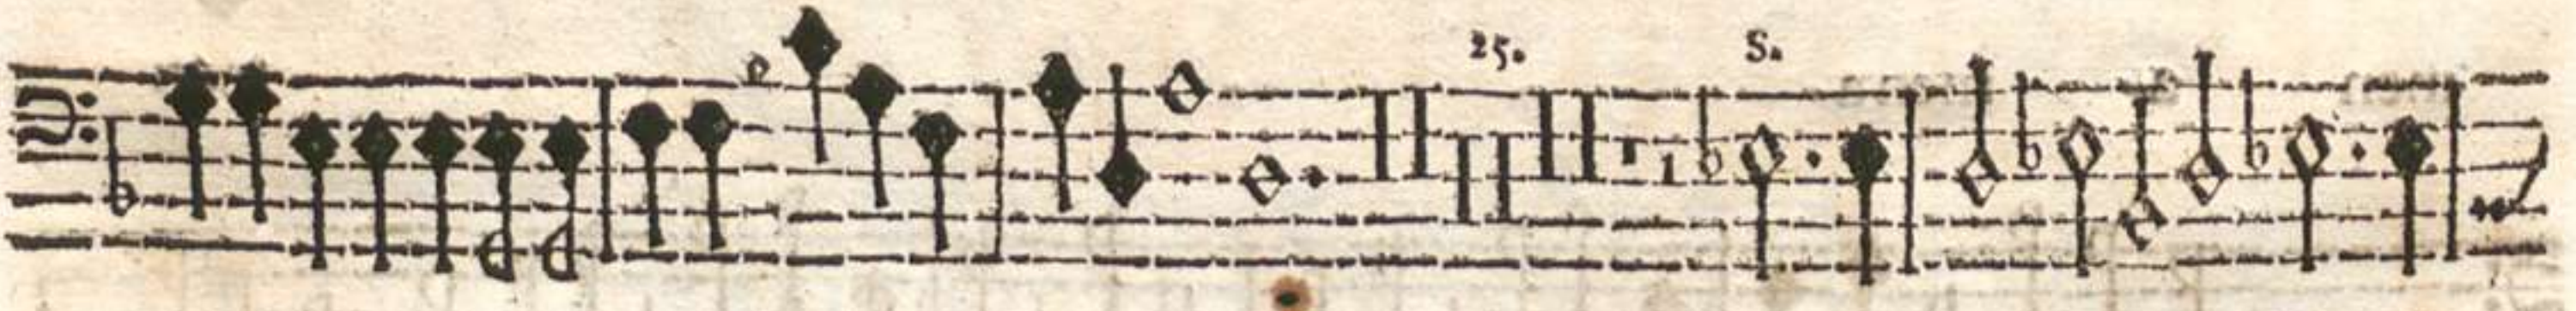 25. S.